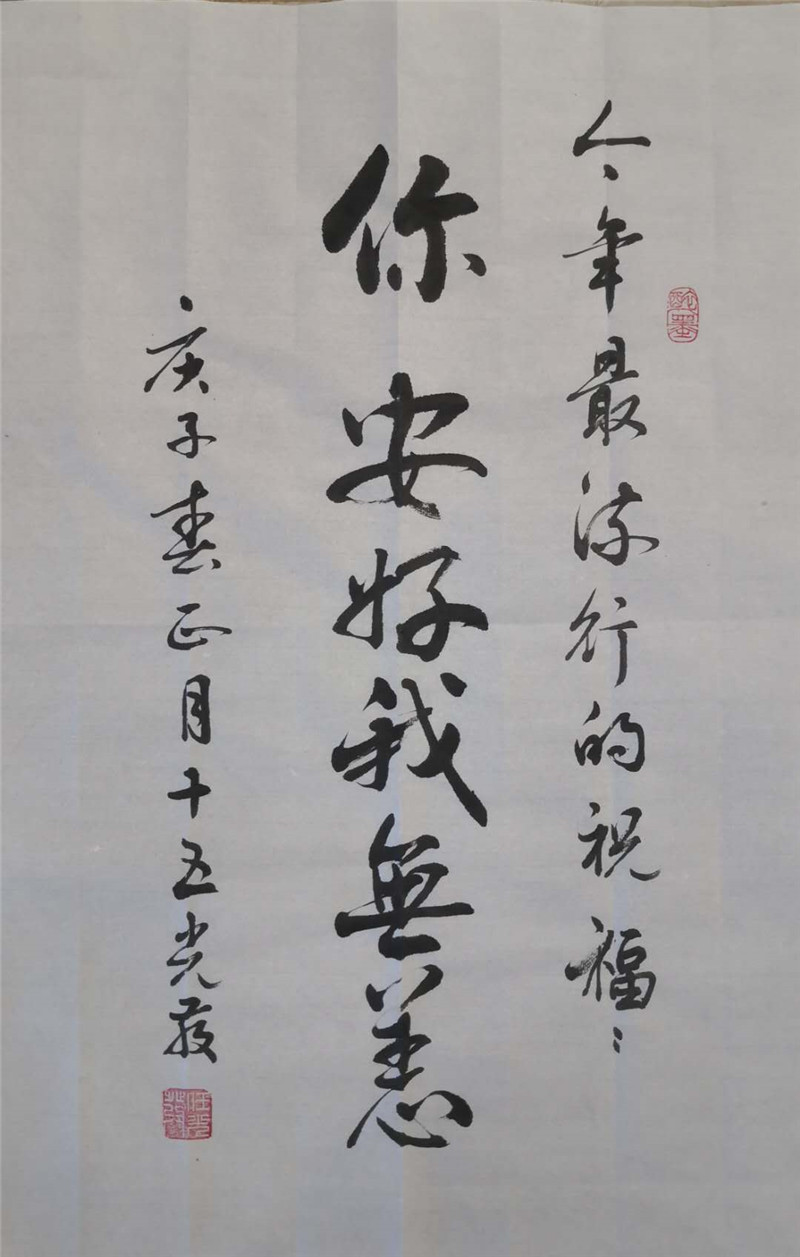 今年最流行的祝福：
你安好我無恙
庚子春正月十五光發